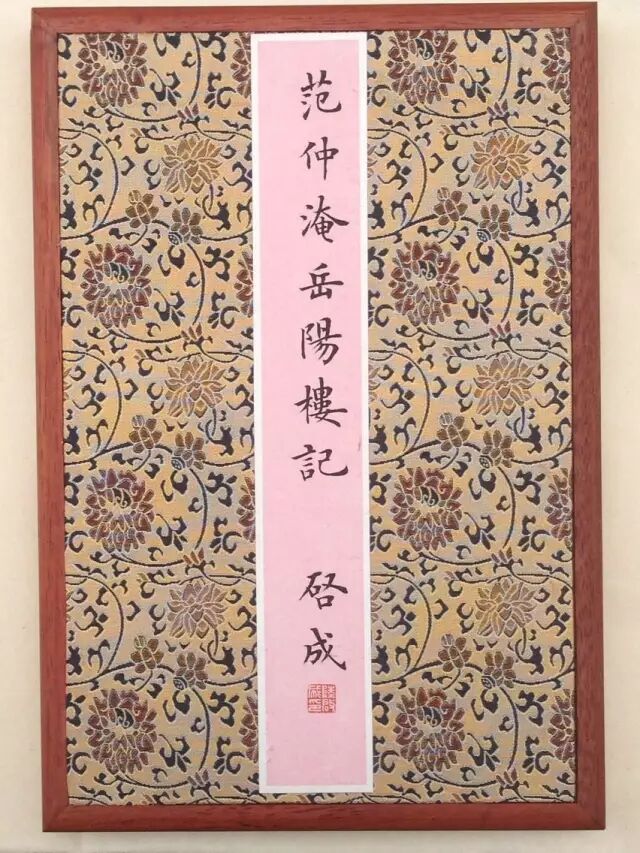 范仲淹岳陽樓記
启成